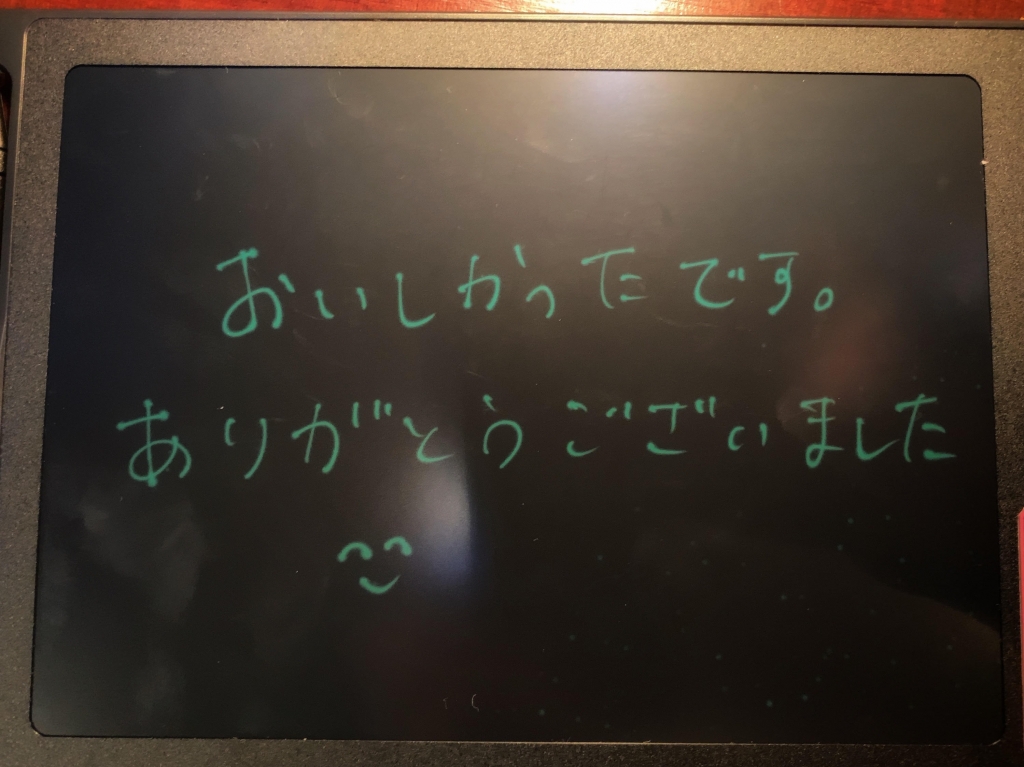 おいしかったです。
ありがとうございました